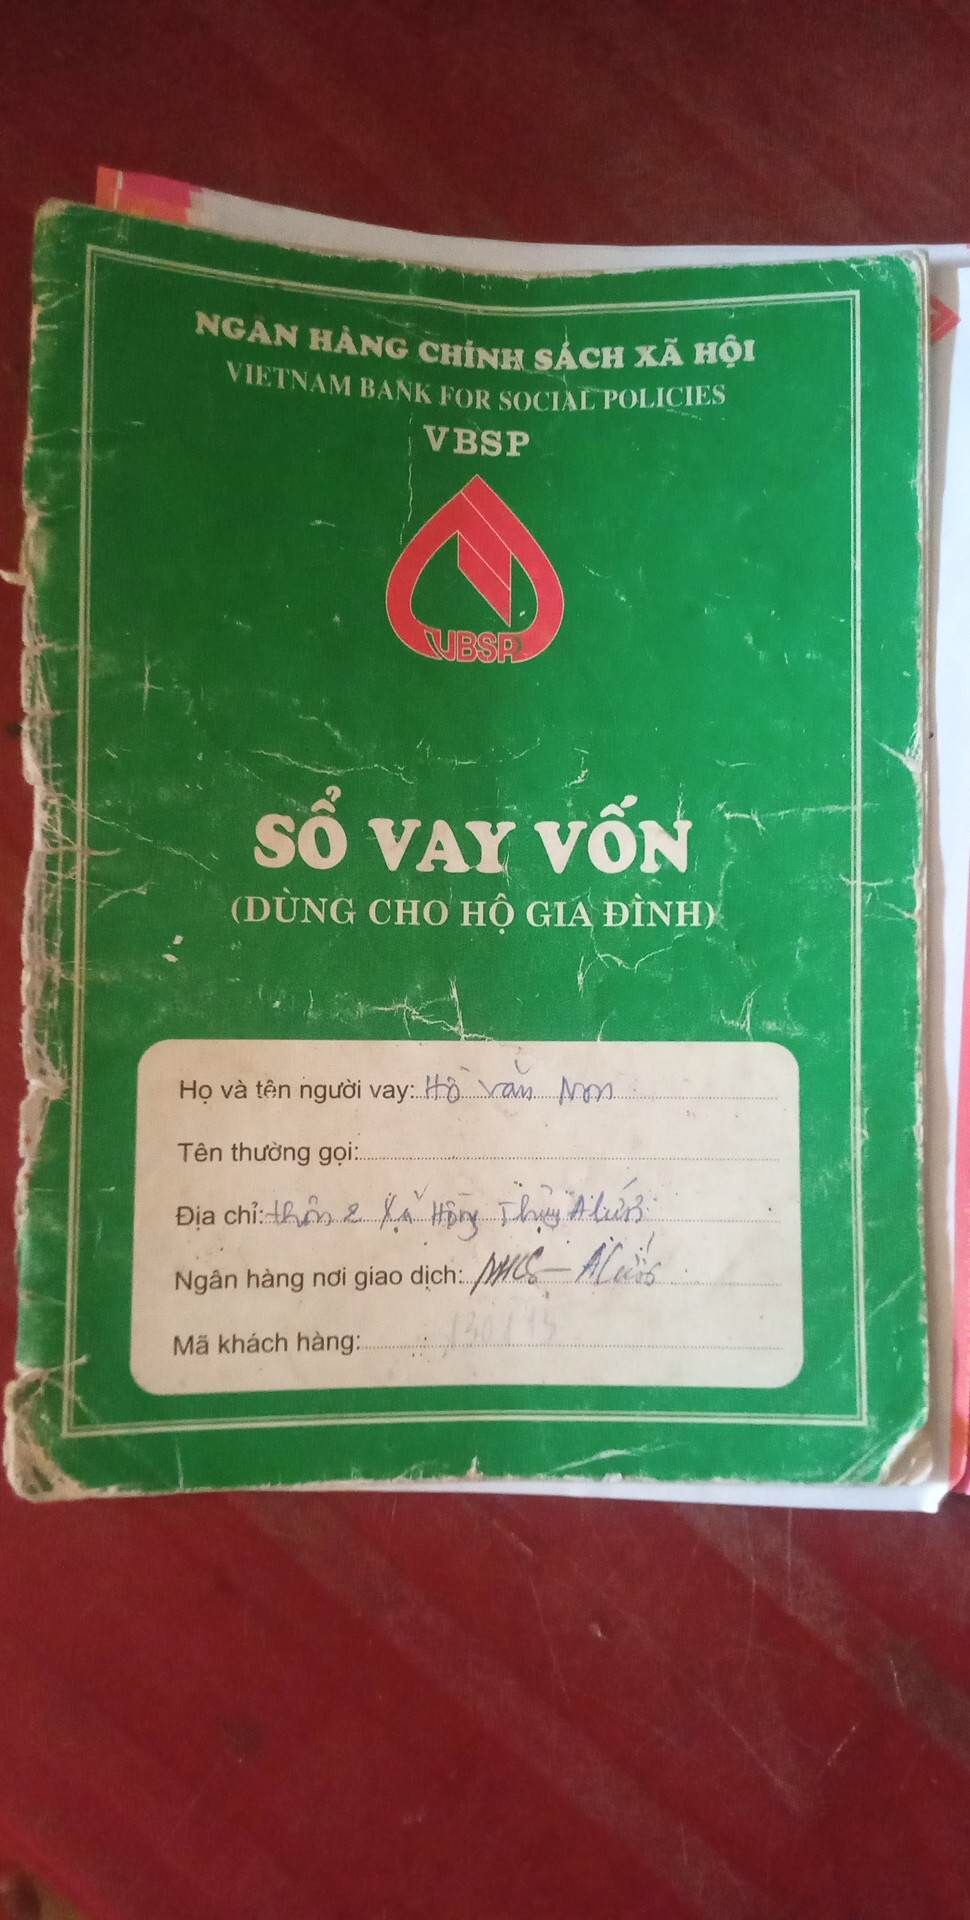 NGÂN HÀNG CHÍNH SÁCH XÃ HỘI
VIETNAM BANK FOR SOCIAL POLICIES
VBSP
VBSP
SỔ VAY VỐN
(DÙNG CHO HỘ GIA ĐÌNH)
Họ và tên người vay: Hồ Văn Non
Tên thường gọi:
Địa chỉ: thôn 2 Xã Hồng Thủy A lưới
Ngân hàng nơi giao dịch: NHCS - A lưới
Mã khách hàng: